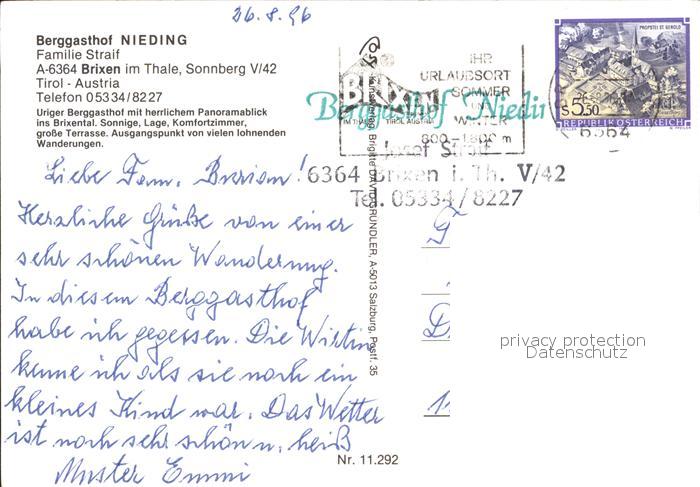 26.8.96
Berggasthof NIEDING
Familie Straif
A-6364 Brixen im Thale, Sonnberg V/42
Tirol - Austria
Telefon 05334/8227
Uriger Berggasthof mit herrlichem Panoramablick
ins Brixental. Sonnige, Lage, Komfortzimmer,
große Terrasse. Ausgangspunkt von vielen lohnenden
Wanderungen.
BRIXEN
IM THALE TIROL AUSTRIA
IHR
URLAUBSORT
SOMMER
UND
WINTER
800-1800 m
PROPSTEI ST. GEROLD
S 5.50
REPUBLIK ÖSTERREICH
6364
Berggasthof Nieding
Josef Straif
6364 Brixen i. Th. V/42
Tel. 05334/8227
Liebe Fam. Burian!
Herzliche Grüße von einer
sehr schönen Wanderung.
In diesem Berggasthof
habe ich gegessen. Die Wirtin
kenne ich als sie noch ein
kleines Kind war. Das Wetter
ist noch sehr schön u. heiß
Muster Emmi
Brigitte DAVID GRÜNDLER, A-5013 Salzburg, Postf. 35
F
D
11
privacy protection
Datenschutz
Nr. 11.292